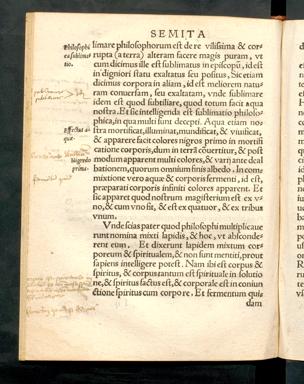 SEMITA
Philosophi
ca sublima
tio.
limare philosophorum est de re vilissima & cor
rupta (a terra) alteram facere magis puram, vt
cum dicimus ille est sublimatus in episcopũ, id est
in digniori statu exaltatus seu positus. Sic etiam
dicimus corpora in aliam, id est meliorem natu
ram conuersam, seu exaltatam, vnde sublimare
idem est quod subtiliare, quod totum facit aqua
nostra. Et sic intelligenda est sublimatio philoso
phica, in qua multi sunt decepti. Aqua etiam no
Effectus a
quæ.
stra mortificat, illuminat, mundificat, & viuificat,
& apparere facit colores nigros primo in mortifi
catione corporis, dum in terrã cõuertitur, & post
Nigredo
prima.
modum apparent multi colores, & varij ante deal
bationem, quorum omnium finis albedo. In com
mixtione vero aquæ & corporis fermenti, id est,
præparati corporis infiniti colores apparent. Et
sic apparet quod nostrum magisterium est ex v
no, & cum vno fit, & est ex quatuor, & ex tribus
vnum.
Vnde scias pater quod philosophi multiplicaue
runt nomina mixti lapidis, & hoc, vt absconde
rent eum. Et dixerunt lapidem mixtum cor
poreum & spiritualem, & non sunt mentiti, prout
sapiens intelligere potest. Nam ibi est corpus &
spiritus, & corpus tantum est spirituale in solutio
ne, & spiritus factus est, & corporale est in coniun
ctione spiritus cum corpore. Et fermentum quis
dam